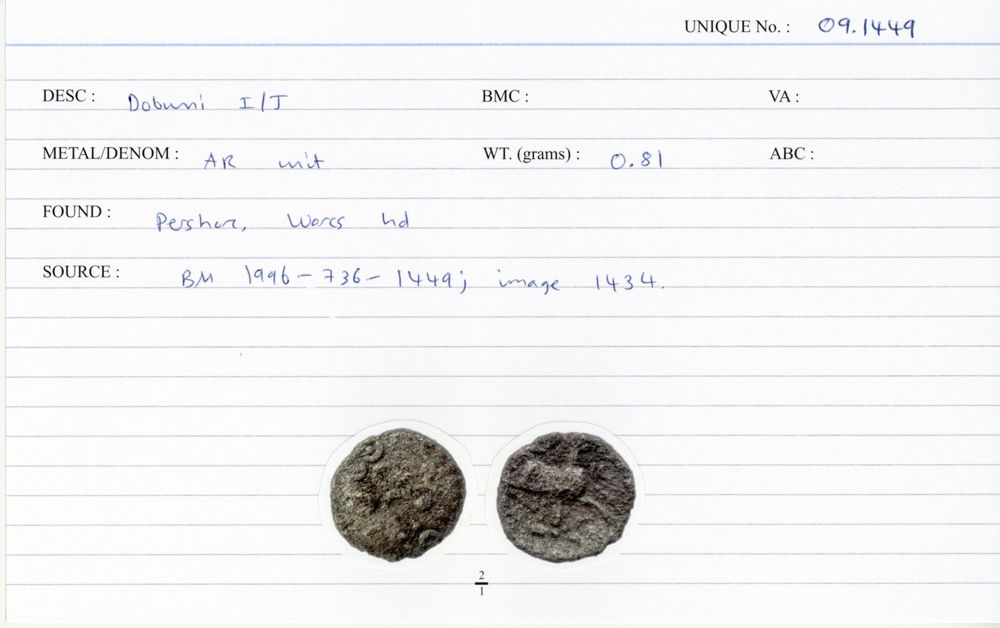 UNIQUE No. : 09.1449
DESC : Dobunni I/J BMC : VA :
METAL/DENOM : AR unit WT. (grams) : 0.81 ABC :
FOUND : Pershore, Worcs hd
SOURCE : BM 1996-736-1449; image 1434.
2
1